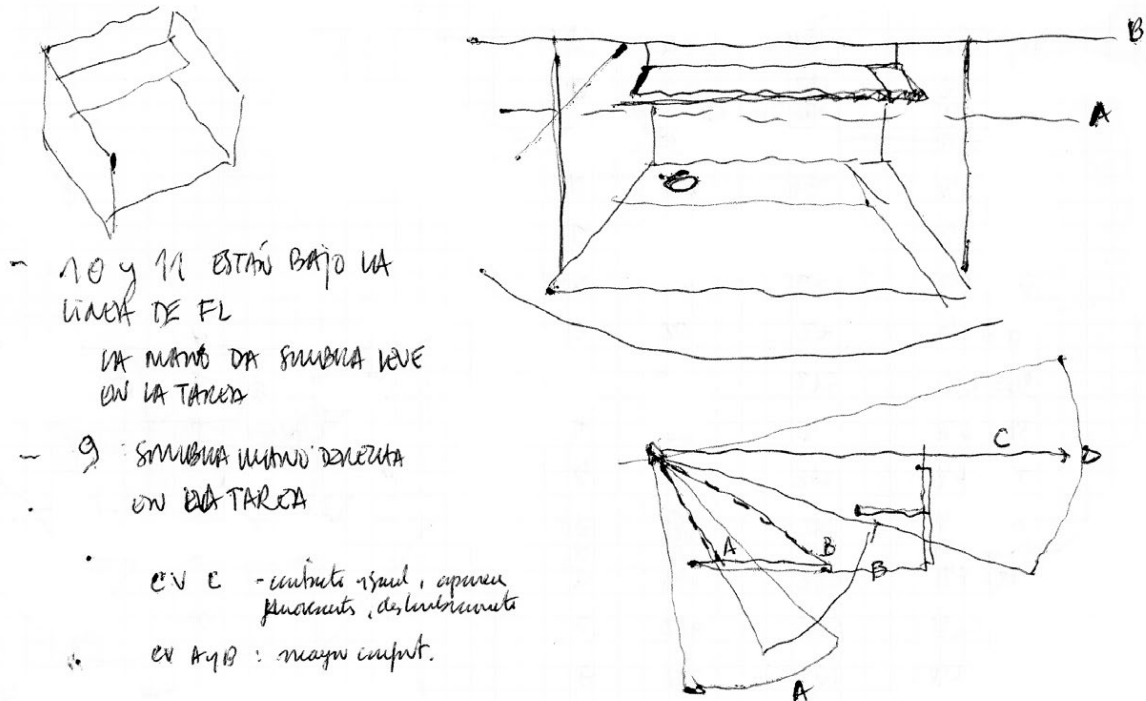 B
A
- 10 y 11 ESTÁN BAJO LA
LÍNEA DE FL
LA MANO DA SOMBRA LEVE
EN LA TAREA
- 9 SOMBRA MANO DERECHA
EN LA TAREA
CV C - contraste igual, aparece
, deslumbramiento
CV A y B : mayor confort.
C
A
B
B
A